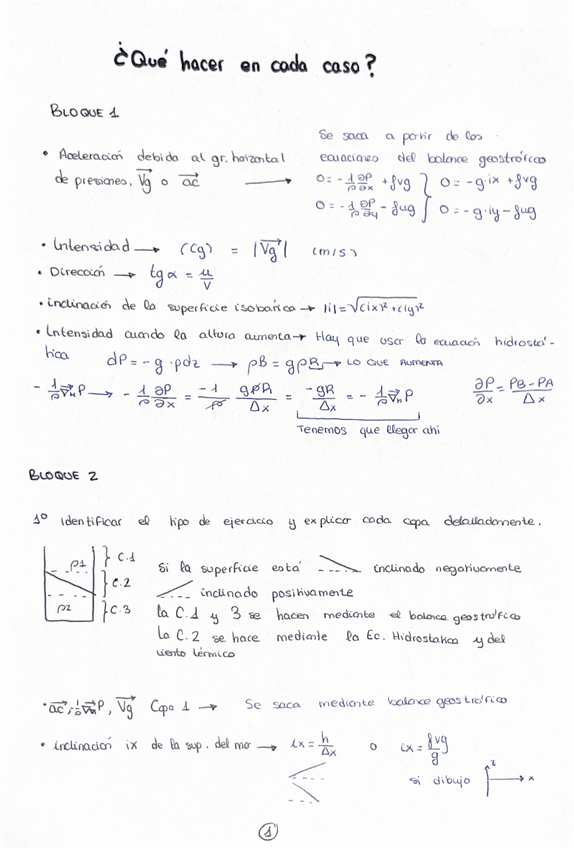 ¿Qué hacer en cada caso?
BLOQUE 1
Se saca a partir de las
• Aceleración debida al gr. horizontal ecuaciones del balance geostrófico
de presiones, Vg o ac → 0 = -1/ρ ∂P/∂x + fvg } 0 = -g·ix + fvg
0 = -1/ρ ∂P/∂y - fug } 0 = -g·iy - fug
• Intensidad → (Cg) = |Vg| (m/s)
• Dirección → tg α = u/v
• inclinación de la superficie isobárica → |i| = √(ix)²+(iy)²
• Intensidad cuando la altura aumenta → Hay que usar la ecuación hidrostá-
tica dP = -g·ρdz → ρB = gρR → LO QUE AUMENTA
-1/ρ ∇nP → -1/ρ ∂P/∂x = -1/ρ gρR/Δx = -gR/Δx = -1/ρ ∇nP ∂P/∂x = PB-PA/Δx
Tenemos que llegar ahi
BLOQUE 2
1º Identificar el tipo de ejercicio y explico cada capa detalladamente.
ρ1 } C.1
} C.2
ρ2 } C.3
Si la superficie está inclinado negativamente
inclinado positivamente
la C.1 y 3 se hacen mediante el balance geostrófico
la C.2 se hace mediante la Ec. Hidrostatica y del
viento térmico
• ac, -1/ρ ∇nP, Vg Capa 1 → Se saca mediante balance geostrófico
• inclinación ix de la sup. del mar → ix = h/Δx o ix = fvg/g
si dibujo z x
1